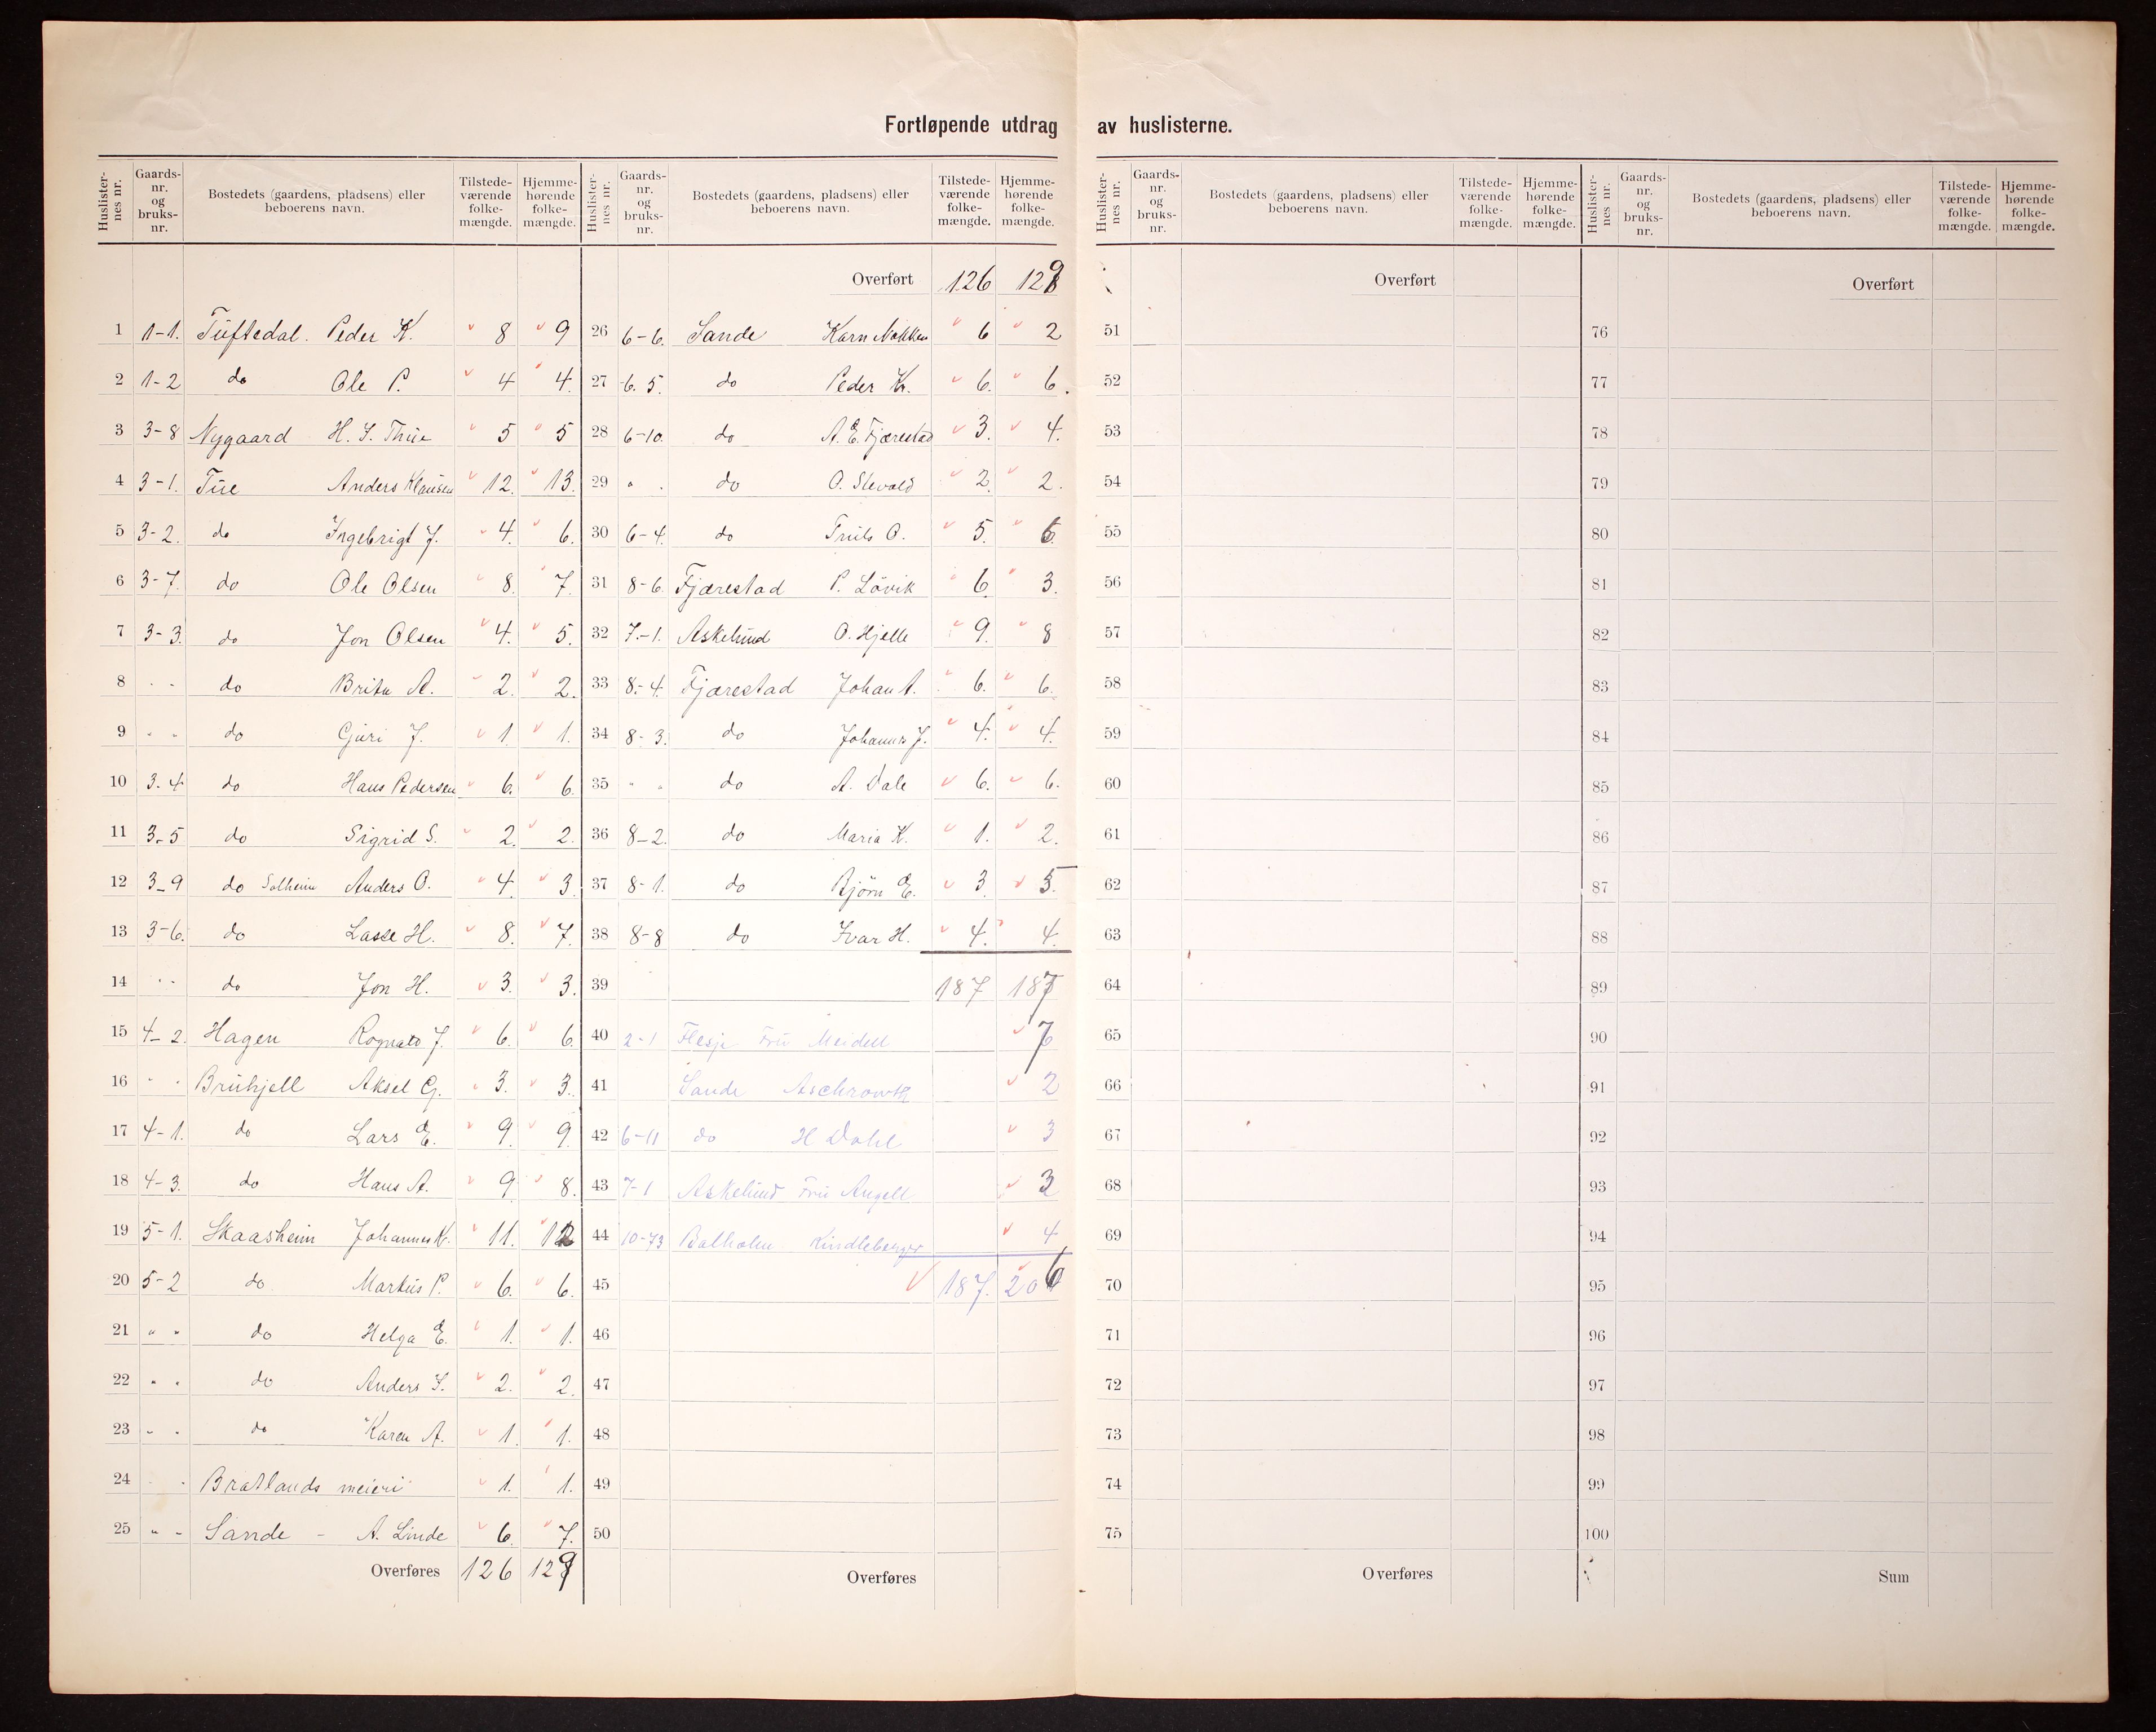 Fortløpende utdrag av huslisterne.
Huslister-nes nr. | Gaards-nr. og bruks-nr. | Bostedets (gaardens, pladsens) eller beboerens navn. | Tilstede-værende folke-mængde. | Hjemme-hørende folke-mængde.
1 1-1. Tuftedal. Peder K. 8 9
2 1-2 do Ole P. 4 4.
3 3-8 Nygaard H. S. Thue 5 5
4 3-1. Tue Anders Klausen 12. 13.
5 3-2. do Ingebrigt J. 4. 6.
6 3-7. do Ole Olsen 8. 7.
7 3-3. do Jon Olsen 4. 5.
8 - - do Brita A. 2. 2.
9 " " do Guri J. 1. 1.
10 3.4 do Hans Pedersen 6. 6.
11 3-5 do Sigrid S. 2. 2.
12 3-9 do Solheim Anders O. 4. 3.
13 3-6. do Lasse H. 8. 7.
14 " " do Jon H. 3. 3.
15 4-2. Hagen Rognald J. 6. 6.
16 " " Bruhjell Aksel G. 3. 3.
17 4-1. do Lars E. 9. 9.
18 4-3. do Hans A. 9. 8.
19 5-1. Skaasheim Johannes K. 11. 12
20 5-2 do Markus P. 6. 6.
21 " " do Helga E. 1. 1.
22 " " do Anders S. 2. 2.
23 " " do Karen A. 1. 1.
24 - - Bratlands meieri 1. 1.
25 " - Sande - A. Linde 6. 7.
Overføres 126 129
Huslister-nes nr. | Gaards-nr. og bruks-nr. | Bostedets (gaardens, pladsens) eller beboerens navn. | Tilstede-værende folke-mængde. | Hjemme-hørende folke-mængde.
Overført 126 129
26 6-6. Sande Karn Nokken 6 2
27 6.5. do Peder Kr. 6. 6.
28 6-10. do A. E. Fjærestad 3. 4.
29 " . do O. 2. 2.
30 6-4. do Truls O. 5. 6.
31 8-6. Fjærestad P. Lövik 6. 3.
32 7.-1. Askelund O. Hjelle 9. 8
33 8.-4. Fjærestad Johan A. 6. 6.
34 8-3. do Johannes J. 4. 4.
35 " " do A. Dale 6. 6.
36 8-2. do Maria K. 1. 2.
37 8-1. do Björn E. 3. 5.
38 8-8 do Ivar H. 4. 4.
39 187 187
40 2-1 Flesje Fru Meidell 7
41 Sande 2
42 6-11 do H Dahl 3
43 7-1 Askelund Fru Angell 3
44 10-73 Balholm Kindleberger 4
45 187. 206
46
47
48
49
50
Overføres
Huslister-nes nr. | Gaards-nr. og bruks-nr. | Bostedets (gaardens, pladsens) eller beboerens navn. | Tilstede-værende folke-mængde. | Hjemme-hørende folke-mængde.
Overført
51
52
53
54
55
56
57
58
59
60
61
62
63
64
65
66
67
68
69
70
71
72
73
74
75
Overføres
Huslister-nes nr. | Gaards-nr. og bruks-nr. | Bostedets (gaardens, pladsens) eller beboerens navn. | Tilstede-værende folke-mængde. | Hjemme-hørende folke-mængde.
Overført
76
77
78
79
80
81
82
83
84
85
86
87
88
89
90
91
92
93
94
95
96
97
98
99
100
Sum